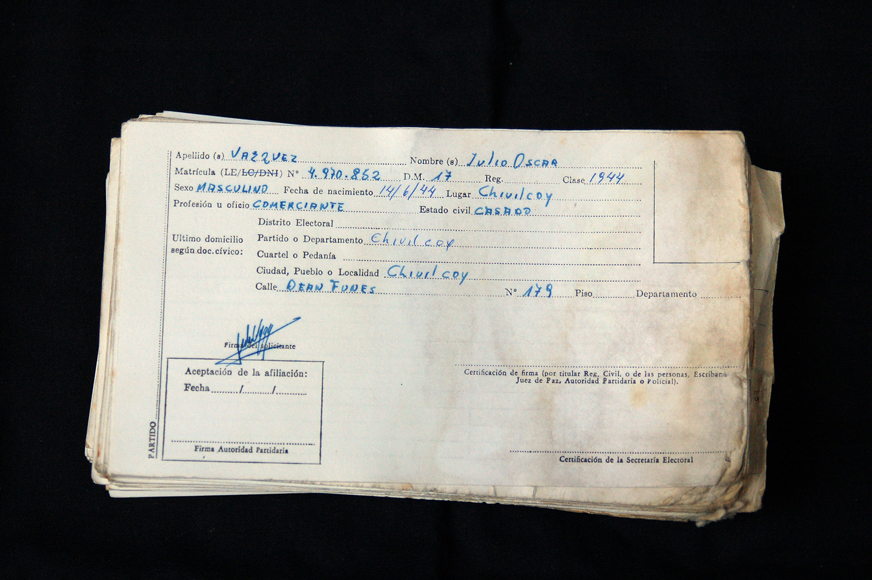 Apellido (s) VAZQUEZ Nombre (s) JULIO OSCAR
Matrícula (LE/LC/DNI) N° 4.970.852 D.M. 17 Reg. Clase 1944
Sexo MASCULINO Fecha de nacimiento 14/6/44 Lugar Chivilcoy
Profesión u oficio COMERCIANTE Estado civil CASADO
Distrito Electoral
Ultimo domicilio según doc.cívico:
Partido o Departamento Chivilcoy
Cuartel o Pedanía
Ciudad, Pueblo o Localidad Chivilcoy
Calle DEAN FUNES N° 179 Piso Departamento
Firma del solicitante
Aceptación de la afiliación:
Fecha / /
Firma Autoridad Partidaria
Certificación de firma (por titular Reg. Civil, o de las personas, Escribano
Juez de Paz, Autoridad Partidaria o Policial).
Certificación de la Secretaría Electoral
PARTIDO